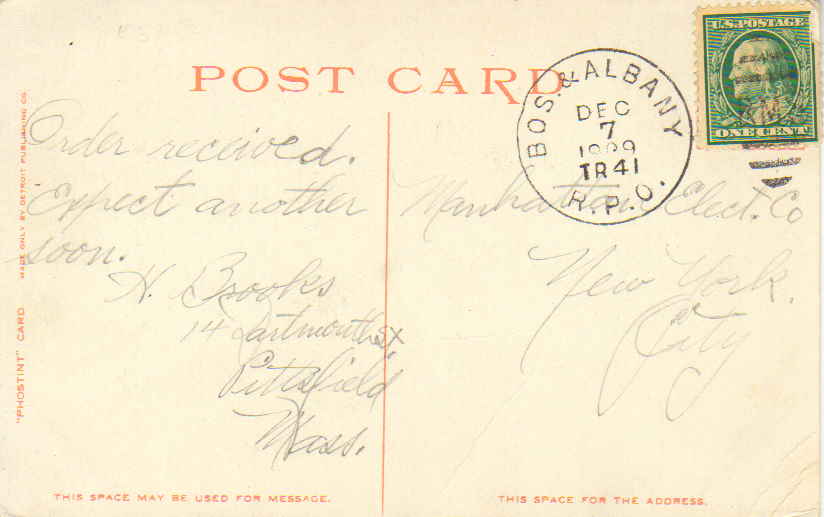 POST CARD
BOS. & ALBANY
DEC
7
1909
TR 41
R.P.O.
U.S. POSTAGE
ONE CENT
"PHOSTINT" CARD
MADE ONLY BY DETROIT PUBLISHING CO.
Order received.
Expect another
soon.
H. Brooks
14 Dartmouth St.
Pittsfield
Mass.
Manhattan Elect. Co
New York.
City
THIS SPACE MAY BE USED FOR MESSAGE.
THIS SPACE FOR THE ADDRESS.